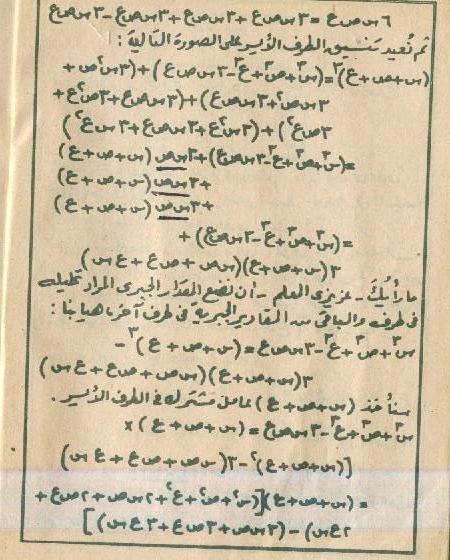 ٦ س ص ع = ٣ س ص ع + ٣ س ص ع + ٣ س ص ع − ٣ س ص ع
ثم نعيد تنسيق الطرف الأيسر على الصورة التالية:
(س + ص + ع)³ = (س³ + ص³ + ع³ − ٣ س ص ع) + (٣ س² ص +
٣ س ص² + ٣ س ص ع) + (٣ س ص ع + ٣ ص² ع +
٣ ص ع²) + (٣ س² ع + ٣ س ص ع + ٣ س ع²)
= (س³ + ص³ + ع³ − ٣ س ص ع) + ٣ س ص (س + ص + ع)
+ ٣ س ص (س + ص + ع)
+ ٣ س ص (س + ص + ع)
= (س³ + ص³ + ع³ − ٣ س ص ع) +
٣ (س + ص + ع) (س ص + ص ع + ع س)
ما رأيك - عزيزي المعلم - أن نضع المقدار الجبري المراد تحليله
في طرف والباقي من المقادير الجبرية في طرف آخر، هيا بنا:
س³ + ص³ + ع³ − ٣ س ص ع = (س + ص + ع)³ −
٣ (س + ص + ع) (س ص + ص ع + ع س)
سنأخذ (س + ص + ع) عامل مشترك في الطرف الأيسر.
س³ + ص³ + ع³ − ٣ س ص ع = (س + ص + ع) ×
[(س + ص + ع)² − ٣ (س ص + ص ع + ع س)]
= (س + ص + ع) [(س² + ص² + ع² + ٢ س ص + ٢ ص ع +
٢ ع س) − (٣ س ص + ٣ ص ع + ٣ ع س)]